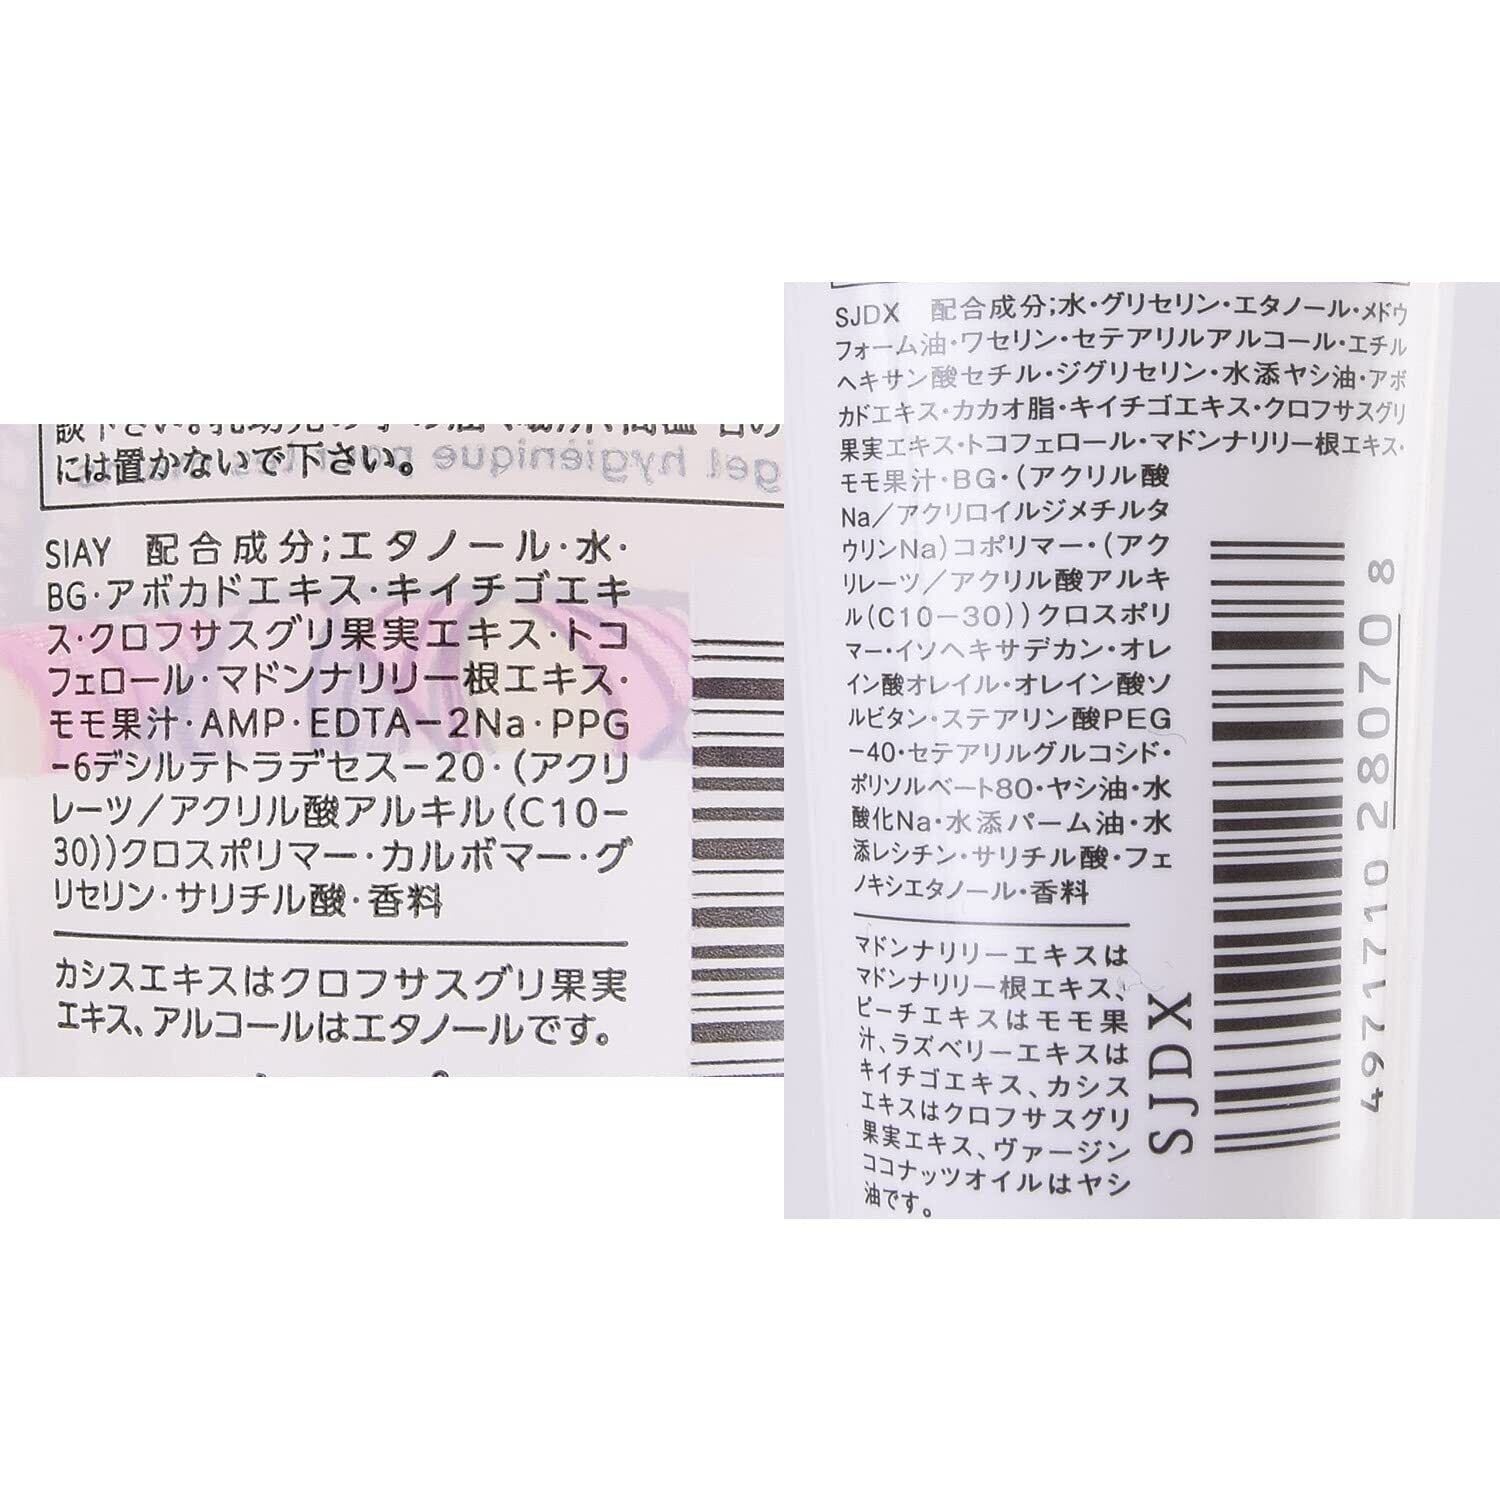 には置かないで下さい。
gel hygiénique pour
SIAY 配合成分;エタノール・水・
BG・アボカドエキス・キイチゴエキ
ス・クロフサスグリ果実エキス・トコ
フェロール・マドンナリリー根エキス・
モモ果汁・AMP・EDTA−2Na・PPG
−6デシルテトラデセス−20・(アクリ
レーツ/アクリル酸アルキル(C10−
30))クロスポリマー・カルボマー・グ
リセリン・サリチル酸・香料
カシスエキスはクロフサスグリ果実
エキス、アルコールはエタノールです。
SJDX 配合成分;水・グリセリン・エタノール・メドウ
フォーム油・ワセリン・セテアリルアルコール・エチル
ヘキサン酸セチル・ジグリセリン・水添ヤシ油・アボ
カドエキス・カカオ脂・キイチゴエキス・クロフサスグリ
果実エキス・トコフェロール・マドンナリリー根エキス・
モモ果汁・BG・(アクリル酸
Na/アクリロイルジメチルタ
ウリンNa)コポリマー・(アク
リレーツ/アクリル酸アルキ
ル(C10−30))クロスポリ
マー・イソヘキサデカン・オレ
イン酸オレイル・オレイン酸ソ
ルビタン・ステアリン酸PEG
−40・セテアリルグルコシド・
ポリソルベート80・ヤシ油・水
酸化Na・水添パーム油・水
添レシチン・サリチル酸・フェ
ノキシエタノール・香料
マドンナリリーエキスは
マドンナリリー根エキス、
ピーチエキスはモモ果
汁、ラズベリーエキスは
キイチゴエキス、カシス
エキスはクロフサスグリ
果実エキス、ヴァージン
ココナッツオイルはヤシ
油です。
SJDX
4971710 280708